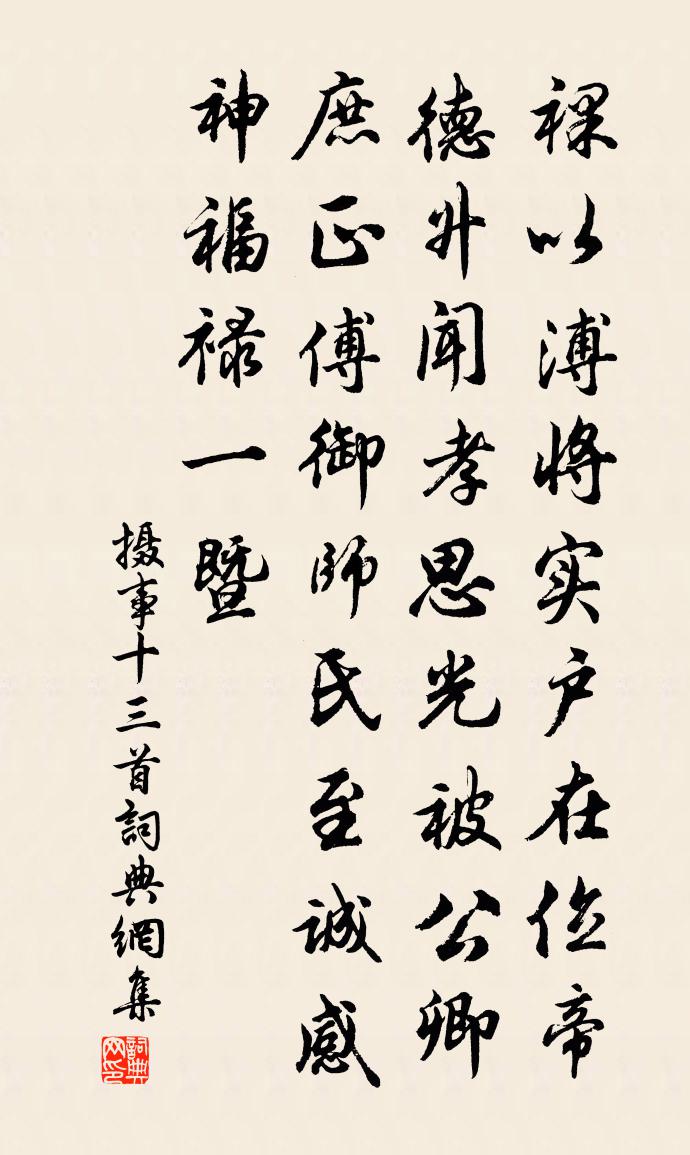 祼以溥将实户在位帝
德升聞孝思光被公卿
庶正傅御師氏至诚感
神福禄一暨
摄事十三首詞典網集
詞典网印